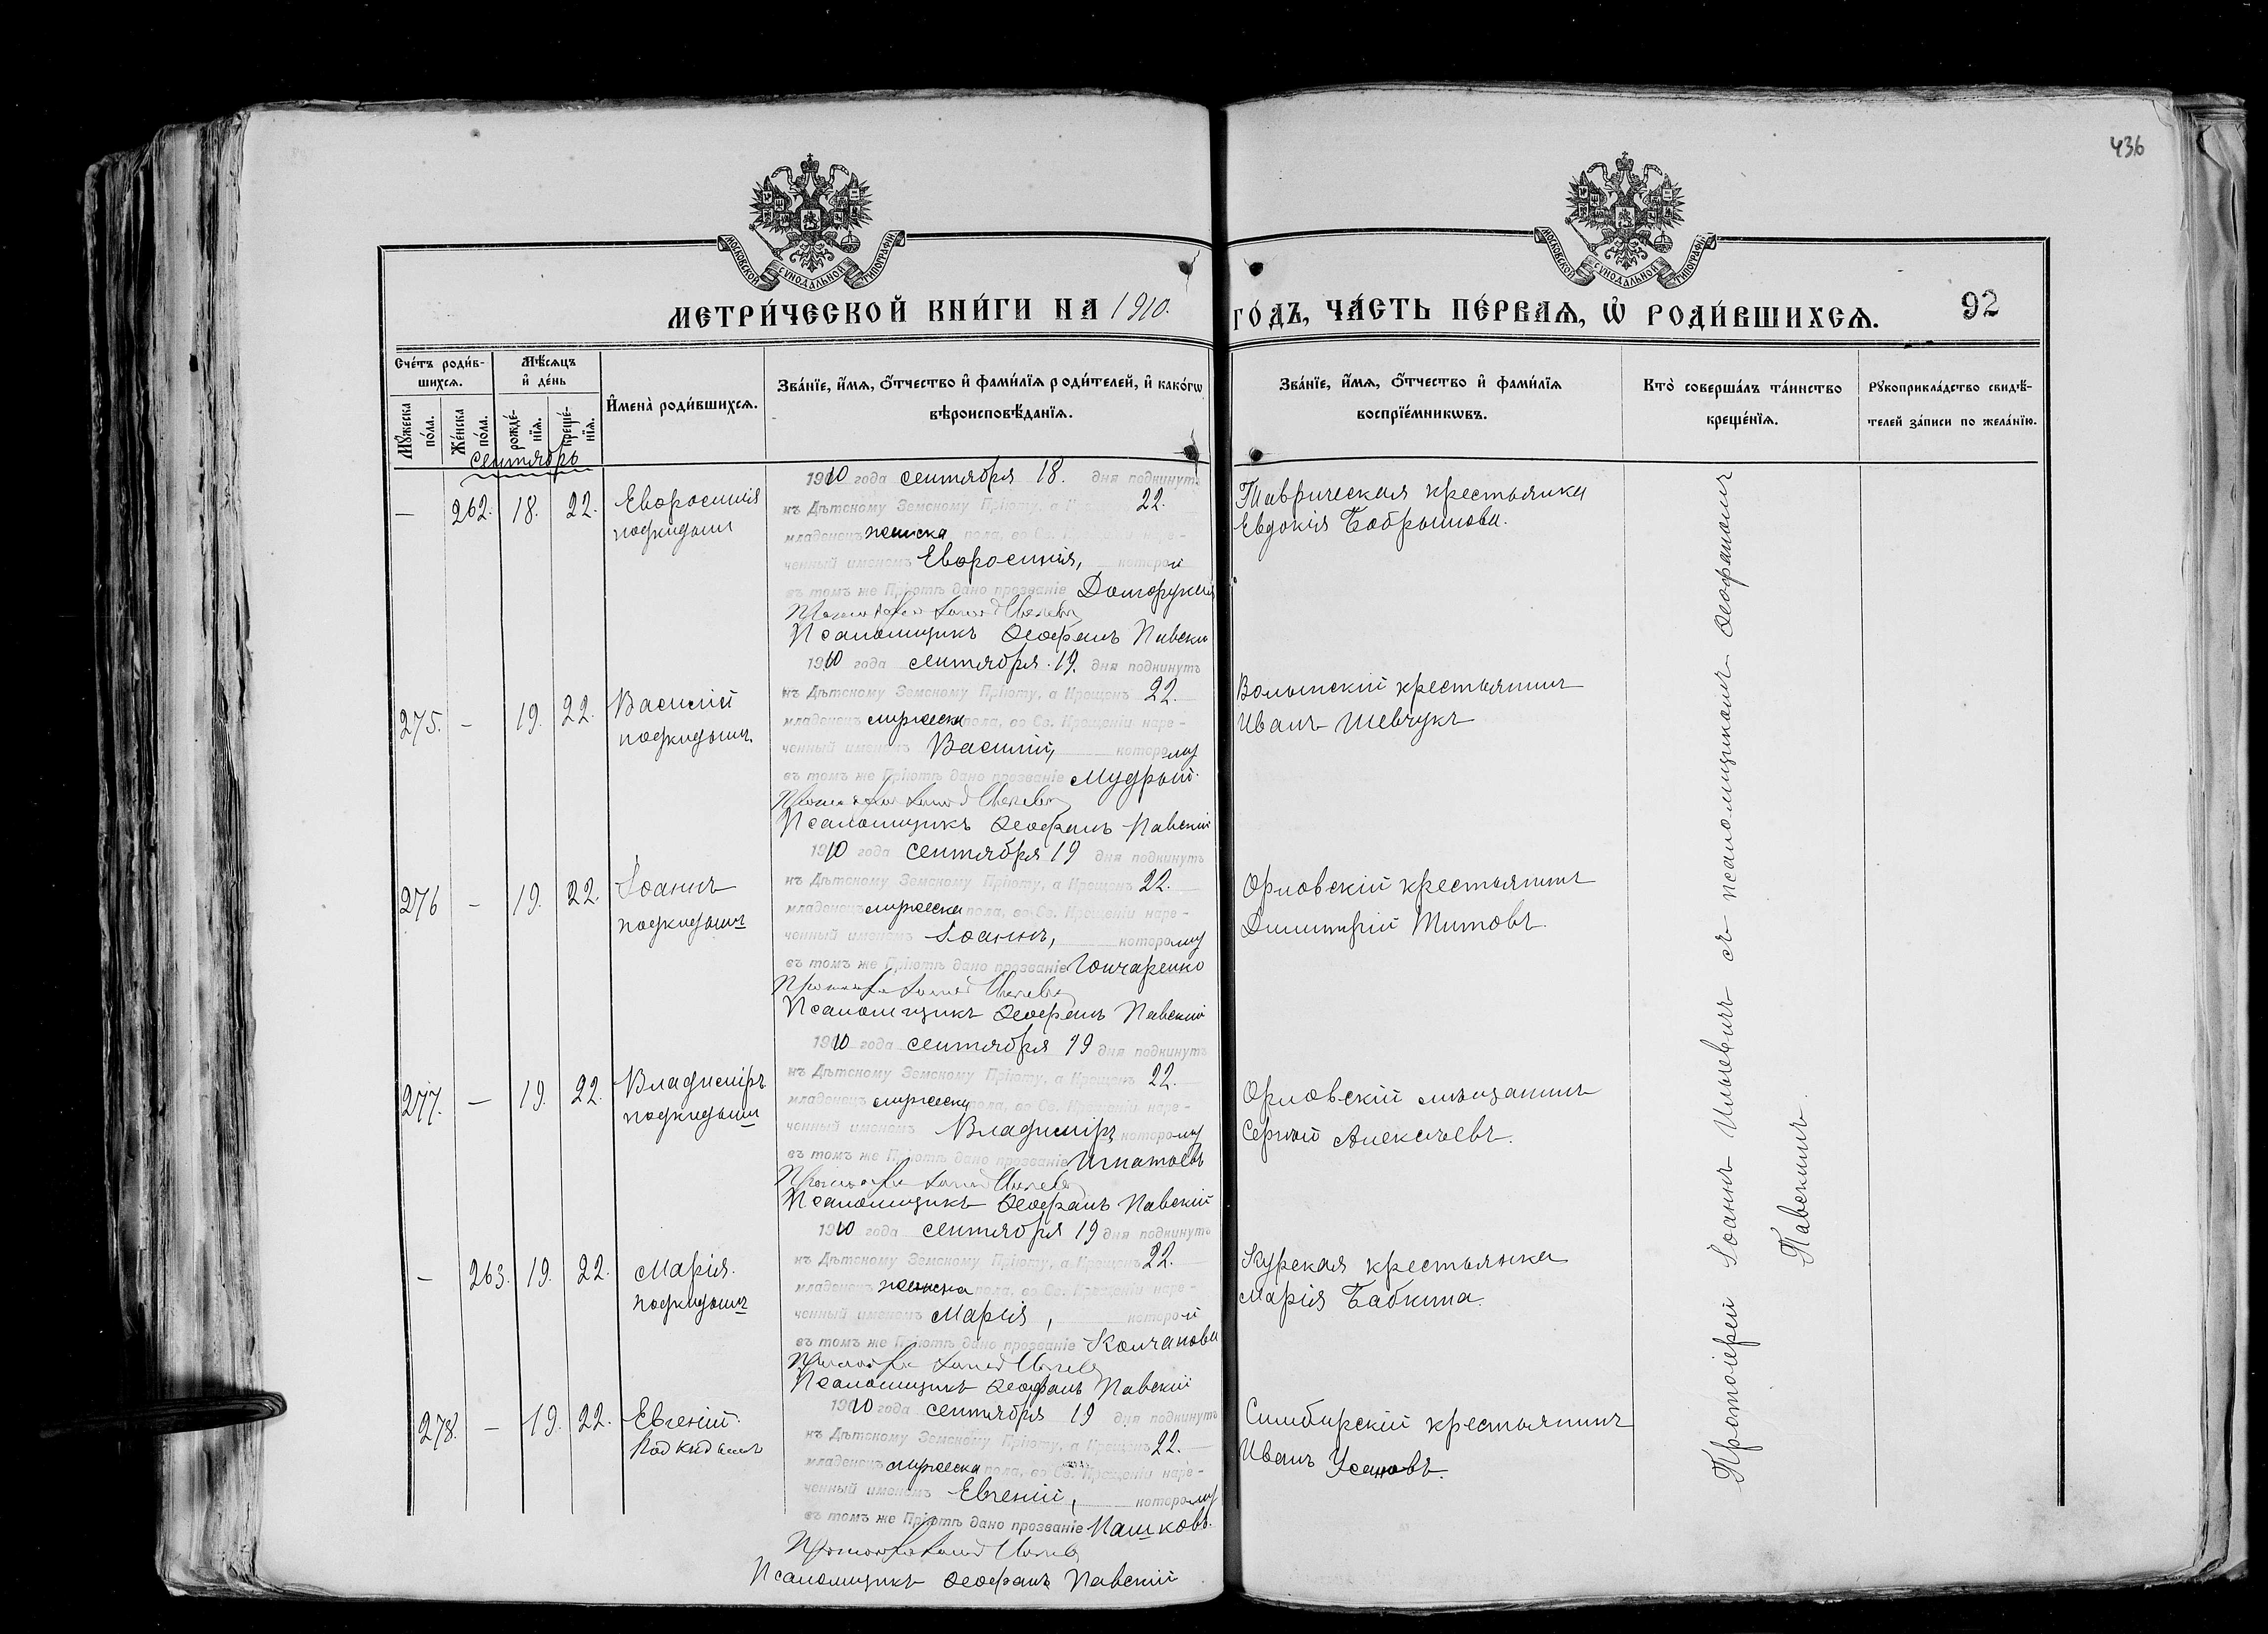 436
МОСКОВСКОЙ СѴНОДАЛЬНОЙ ТИПОГРАФІИ
МОСКОВСКОЙ СѴНОДАЛЬНОЙ ТИПОГРАФІИ
МЕТРИ́ЧЕСКОЙ КНИ́ГИ НА 1910. ГО́ДЪ, ЧА́СТЬ ПЕ́РВАѦ, Ѡ҆ РОДИ́ВШИХСѦ. 92
Сче́тъ роди́в-
шихсѧ.
Мꙋ́жеска по́ла.
Же́нска по́ла.
Мѣ́сѧцъ
и҆ де́нь
рожде́-
нїѧ.
креще́-
нїѧ.
И҆мена̀ роди́вшихсѧ.
Зва́нїе, и҆́мѧ, ѻ҆́тчество и҆ фами́лїѧ роди́телей, и҆ како́гѡ
вѣроисповѣ́данїѧ.
Зва́нїе, и҆́мѧ, ѻ҆́тчество и҆ фами́лїѧ
воспрїе́мникѡвъ.
Кто̀ соверша́лъ та́инство
креще́нїѧ.
Рꙋкоприкла́дство свидѣ́-
телей за́писи по жела́нїю.
Сентябрь
— 262. 18. 22. Евфросинія
подкидыш
1910 года сентября 18. дня подкинутъ
къ Дѣтскому Земскому Пріюту, а 22.
младенецъ женска пола, во Св. Крещеніи наре-
ченный именемъ Евфросинія, которой
въ томъ же Пріютѣ дано прозваніе
Псаломщикъ Ѳеофанъ Павскій
Таврическая крестьянка
Евдокія Бобрышова.
275. — 19. 22. Василій
подкидышъ.
1910 года сентября 19. дня подкинутъ
къ Дѣтскому Земскому Пріюту, а Крещенъ 22.
младенецъ мужеска пола, во Св. Крещеніи наре-
ченный именемъ Василій, которому
въ томъ же Пріютѣ дано прозваніе Мудрый.
Псаломщикъ Ѳеофанъ Павскій
Волынскій крестьянинъ
Иванъ Шевчукъ
276 — 19. 22. Іоаннъ
подкидышъ
1910 года сентября 19 дня подкинутъ
къ Дѣтскому Земскому Пріюту, а Крещенъ 22.
младенецъ мужеска пола, во Св. Крещеніи наре-
ченный именемъ Іоаннъ, которому
въ томъ же Пріютѣ дано прозваніе Гончаренко
Псаломщикъ Ѳеофанъ Павскій
Орловскій крестьянинъ
Димитрій Титовъ.
277. — 19. 22. Владиміръ
подкидыш
1910 года сентября 19 дня подкинутъ
къ Дѣтскому Земскому Пріюту, а Крещенъ 22.
младенецъ мужеска пола, во Св. Крещеніи наре-
ченный именемъ Владиміръ которому
въ томъ же Пріютѣ дано прозваніе Игнатьевъ
Псаломщикъ Ѳеофанъ Павскій
Орловскій мѣщанинъ
Сергѣй Алексѣевъ.
— 263. 19. 22. Марія.
подкидышъ
1910 года сентября 19 дня подкинутъ
къ Дѣтскому Земскому Пріюту, а Крещенъ 22.
младенецъ женска пола, во Св. Крещеніи наре-
ченный именемъ Марія, которой
въ томъ же Пріютѣ дано прозваніе Колчанова
Псаломщикъ Ѳеофанъ Павскій
Курская крестьянка
Марія Бабкина.
278. — 19. 22. Евгеній.
Подкидышъ
1910 года сентября 19 дня подкинутъ
къ Дѣтскому Земскому Пріюту, а Крещенъ 22.
младенецъ мужеска пола, во Св. Крещеніи наре-
ченный именемъ Евгеній, которому
въ томъ же Пріютѣ дано прозваніе Пашковъ.
Псаломщикъ Ѳеофанъ Павскій
Симбирскій крестьянинъ
Иванъ Усановъ.
Протоіерей Іоаннъ съ псаломщикомъ Ѳеофаномъ
Павскимъ.